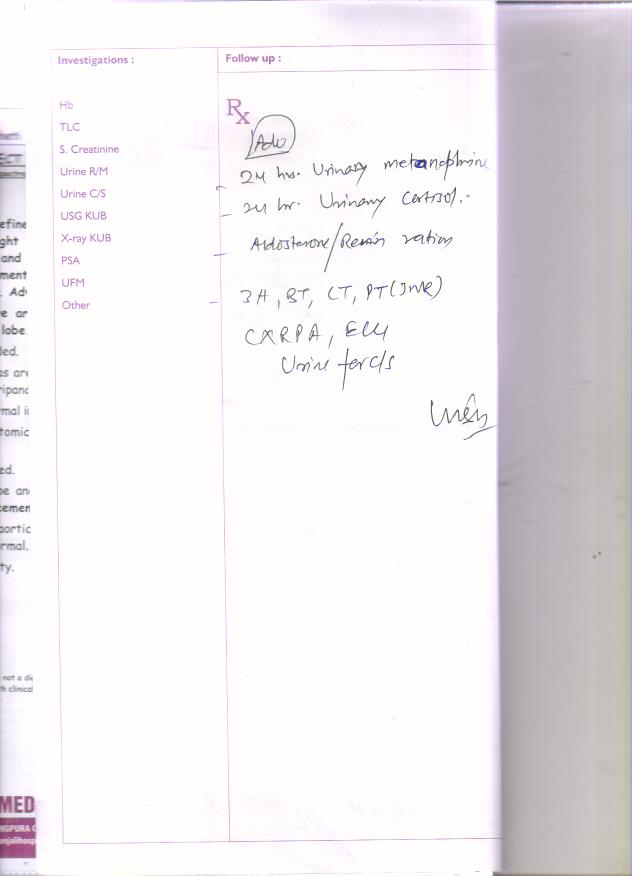 Investigations :
Follow up :
Hb
TLC
S. Creatinine
Urine R/M
Urine C/S
USG KUB
X-ray KUB
PSA
UFM
Other
Rx
Adv
24 hrs. Urinary metanephrine
24 hr. Urinary Cortisol.
Aldosterone/Renin ration
3H, BT, CT, PT(INR)
CXRPA, ECG
Urine for c/s
ECT
efine
ght
and
ment
. Adv
e ar
lobe
ded.
as are
ripanc
mal i
tomic
ed.
be an
cemen
portic
rmal.
ty.
not a di
h clinical
MED
NGPURA
anjalihosp